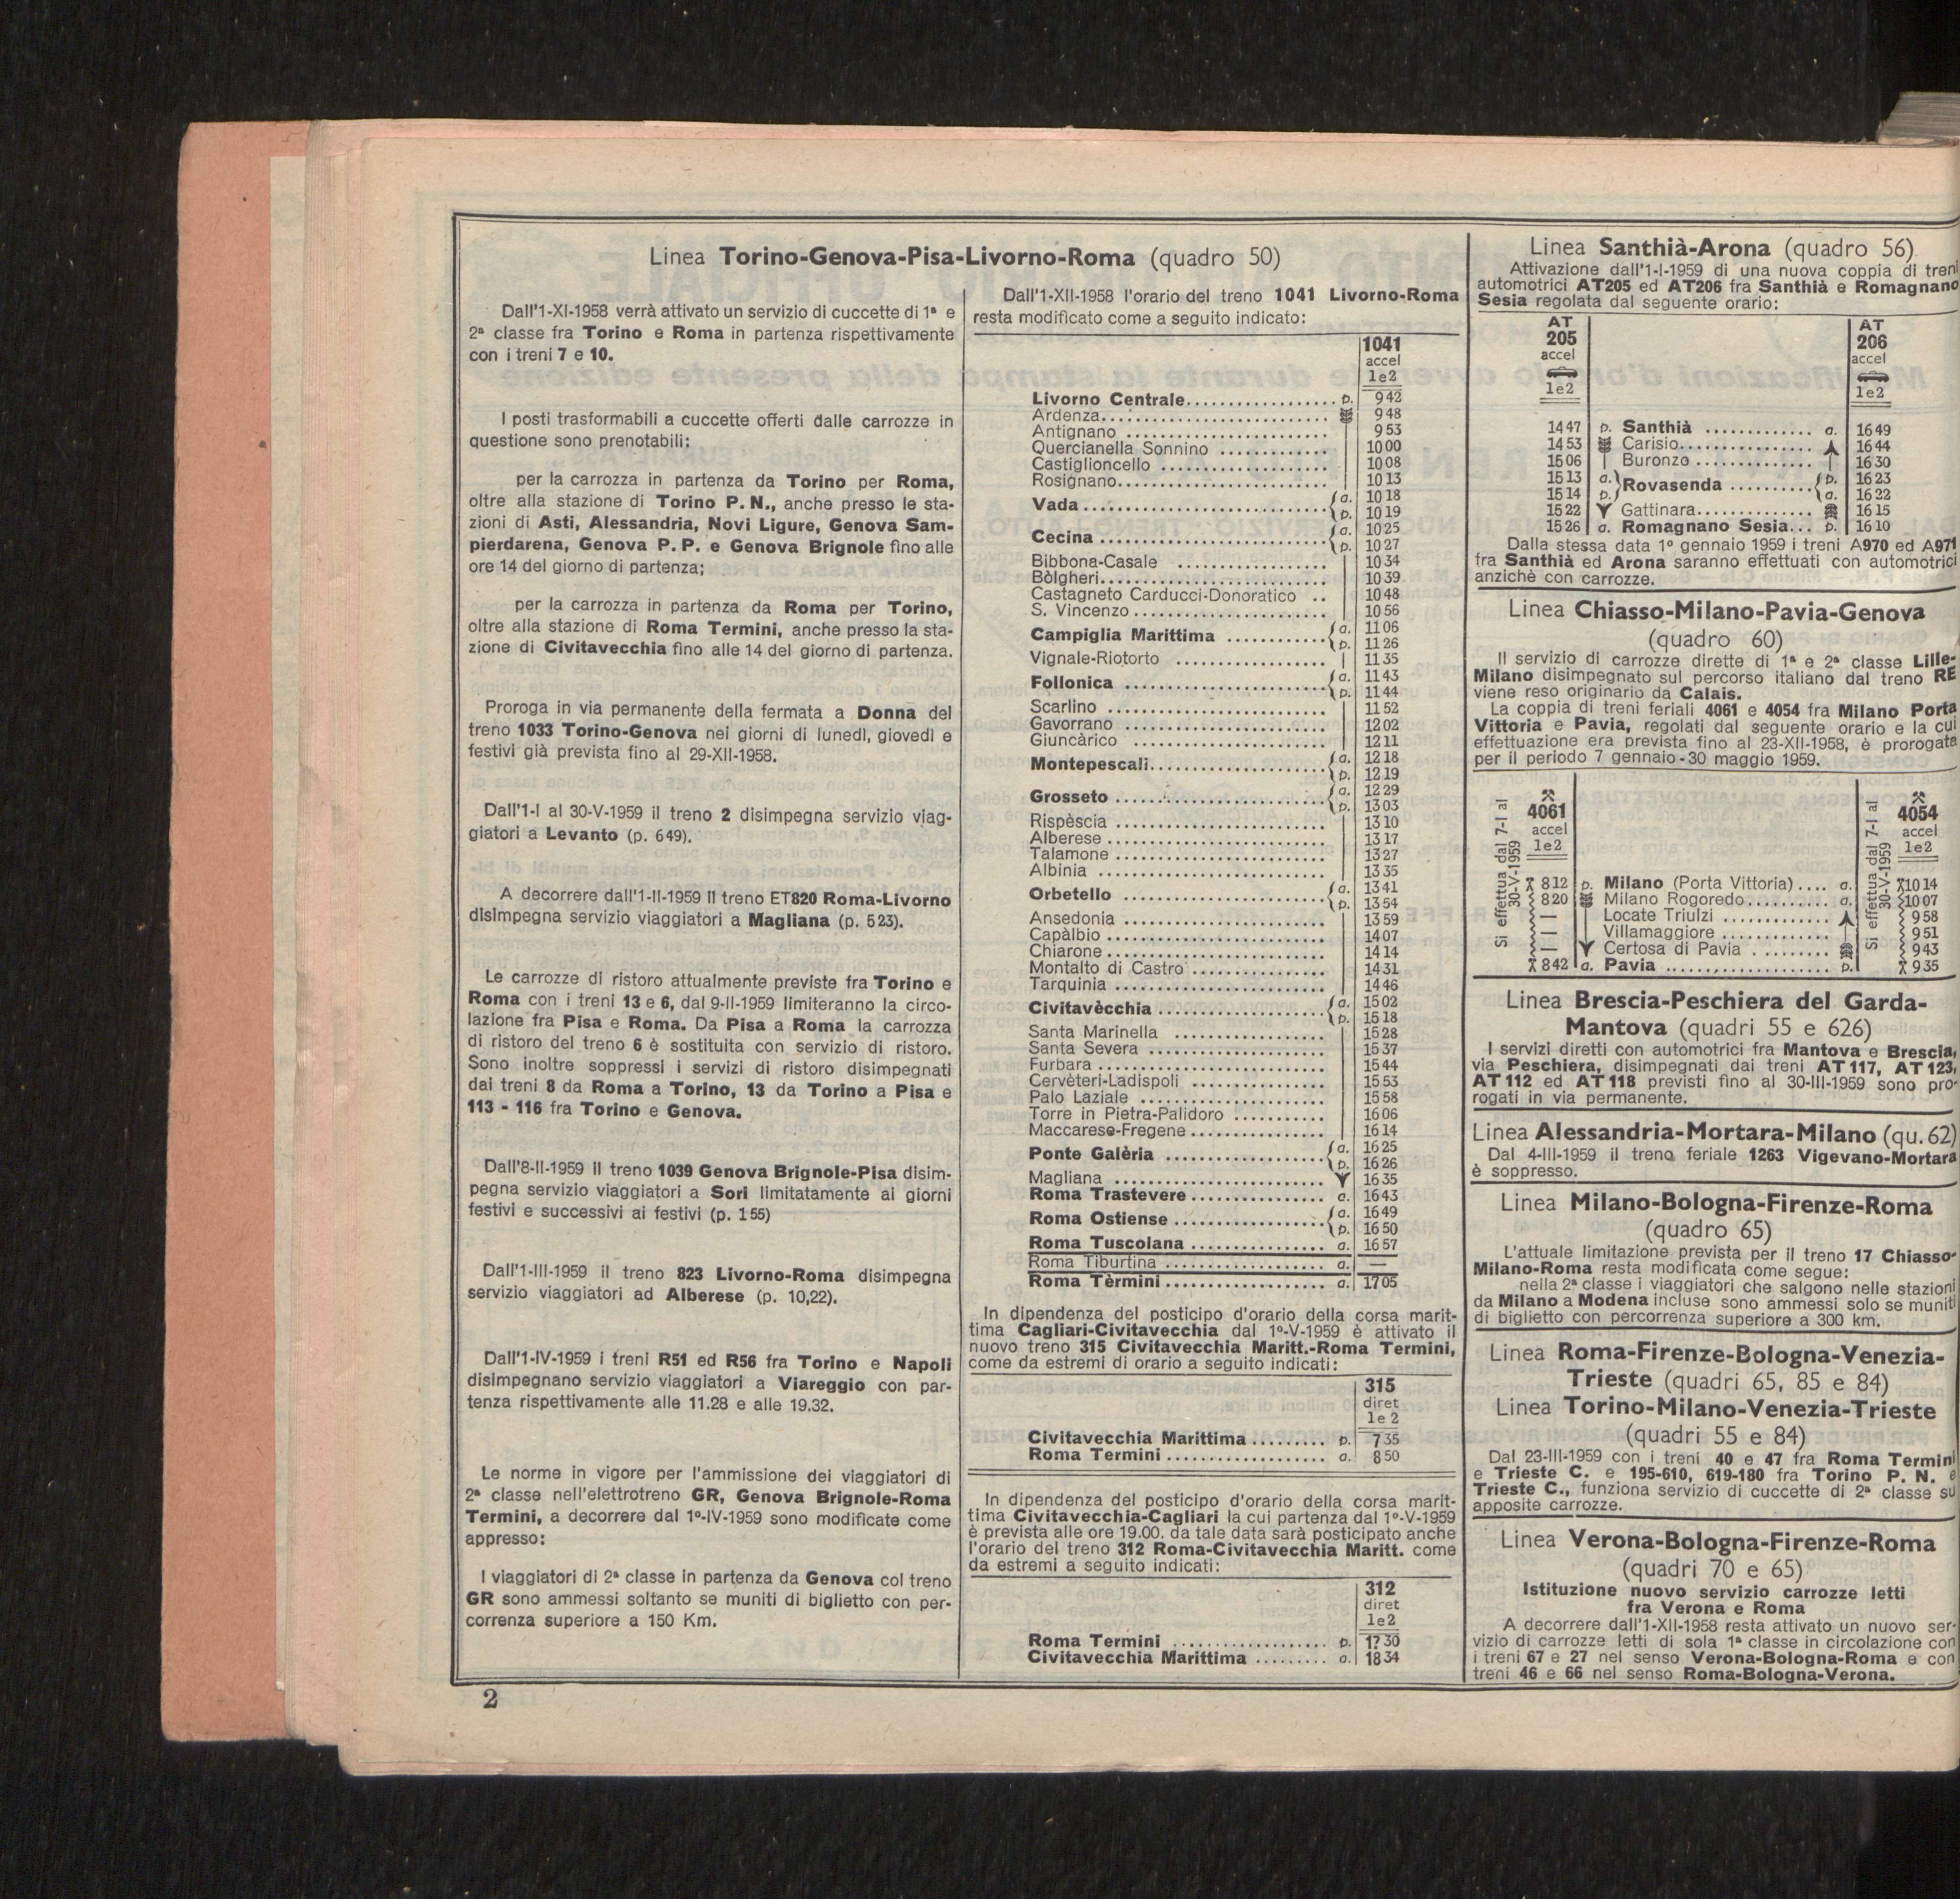 Linea Torino-Genova-Pisa-Livorno-Roma (quadro 50)
Dall'1-XI-1958 verrà attivato un servizio di cuccette di 1ª e
2ª classe fra Torino e Roma in partenza rispettivamente
con i treni 7 e 10.
I posti trasformabili a cuccette offerti dalle carrozze in
questione sono prenotabili:
per la carrozza in partenza da Torino per Roma,
oltre alla stazione di Torino P. N., anche presso le sta-
zioni di Asti, Alessandria, Novi Ligure, Genova Sam-
pierdarena, Genova P. P. e Genova Brignole fino alle
ore 14 del giorno di partenza;
per la carrozza in partenza da Roma per Torino,
oltre alla stazione di Roma Termini, anche presso la sta-
zione di Civitavecchia fino alle 14 del giorno di partenza.
Proroga in via permanente della fermata a Donna del
treno 1033 Torino-Genova nei giorni di lunedì, giovedì e
festivi già prevista fino al 29-XII-1958.
Dall'1-I al 30-V-1959 il treno 2 disimpegna servizio viag-
giatori a Levanto (p. 649).
A decorrere dall'1-II-1959 il treno ET820 Roma-Livorno
disimpegna servizio viaggiatori a Magliana (p. 523).
Le carrozze di ristoro attualmente previste fra Torino e
Roma con i treni 13 e 6, dal 9-II-1959 limiteranno la circo-
lazione fra Pisa e Roma. Da Pisa a Roma la carrozza
di ristoro del treno 6 è sostituita con servizio di ristoro.
Sono inoltre soppressi i servizi di ristoro disimpegnati
dai treni 8 da Roma a Torino, 13 da Torino a Pisa e
113 - 116 fra Torino e Genova.
Dall'8-II-1959 il treno 1039 Genova Brignole-Pisa disim-
pegna servizio viaggiatori a Sori limitatamente ai giorni
festivi e successivi ai festivi (p. 155)
Dall'1-III-1959 il treno 823 Livorno-Roma disimpegna
servizio viaggiatori ad Alberese (p. 10,22).
Dall'1-IV-1959 i treni R51 ed R56 fra Torino e Napoli
disimpegnano servizio viaggiatori a Viareggio con par-
tenza rispettivamente alle 11.28 e alle 19.32.
Le norme in vigore per l'ammissione dei viaggiatori di
2ª classe nell'elettrotreno GR, Genova Brignole-Roma
Termini, a decorrere dal 1º-IV-1959 sono modificate come
appresso:
I viaggiatori di 2ª classe in partenza da Genova col treno
GR sono ammessi soltanto se muniti di biglietto con per-
correnza superiore a 150 Km.
Dall'1-XII-1958 l'orario del treno 1041 Livorno-Roma
resta modificato come a seguito indicato:
1041
accel
1e2
Livorno Centrale.................. p. 9 42
Ardenza............................ 9 48
Antignano ........................ 9 53
Quercianella Sonnino ............ 10 00
Castiglioncello ................... 10 08
Rosignano......................... 10 13
Vada.............................. a. 10 18
p. 10 19
Cecina ............................ a. 10 25
p. 10 27
Bibbona-Casale ................. 10 34
Bòlgheri........................... 10 39
Castagneto Carducci-Donoratico .. 10 48
S. Vincenzo....................... 10 56
Campiglia Marittima ............ a. 11 06
p. 11 26
Vignale-Riotorto ................. 11 35
Follonica ......................... a. 11 43
p. 11 44
Scarlino .......................... 11 52
Gavorrano ........................ 12 02
Giuncàrico ....................... 12 11
Montepescali...................... a. 12 18
p. 12 19
Grosseto .......................... a. 12 29
p. 13 03
Rispèscia ......................... 13 10
Alberese .......................... 13 17
Talamone ......................... 13 27
Albinia ........................... 13 35
Orbetello ......................... a. 13 41
p. 13 54
Ansedonia ........................ 13 59
Capàlbio.......................... 14 07
Chiarone.......................... 14 14
Montalto di Castro ............... 14 31
Tarquinia ......................... 14 46
Civitavècchia ..................... a. 15 02
p. 15 18
Santa Marinella ................. 15 28
Santa Severa .................... 15 37
Furbara .......................... 15 44
Cervèteri-Ladispoli ............... 15 53
Palo Laziale ..................... 15 58
Torre in Pietra-Palidoro .......... 16 06
Maccarese-Fregene............... 16 14
Ponte Galèria .................... a. 16 25
p. 16 26
Magliana ......................... 16 35
Roma Trastevere................. a. 16 43
Roma Ostiense ................... a. 16 49
p. 16 50
Roma Tuscolana ................ a. 16 57
Roma Tiburtina .................. a. —
Roma Tèrmini.................... a. 17 05
In dipendenza del posticipo d'orario della corsa marit-
tima Cagliari-Civitavecchia dal 1º-V-1959 è attivato il
nuovo treno 315 Civitavecchia Maritt.-Roma Termini,
come da estremi di orario a seguito indicati:
315
diret
1e 2
Civitavecchia Marittima ......... p. 7 35
Roma Termini.................... a. 8 50
In dipendenza del posticipo d'orario della corsa marit-
tima Civitavecchia-Cagliari la cui partenza dal 1º-V-1959
è prevista alle ore 19.00. da tale data sarà posticipato anche
l'orario del treno 312 Roma-Civitavecchia Maritt. come
da estremi a seguito indicati:
312
diret
1e2
Roma Termini .................... p. 17 30
Civitavecchia Marittima ......... a. 18 34
Linea Santhià-Arona (quadro 56)
Attivazione dall'1-I-1959 di una nuova coppia di treni
automotrici AT205 ed AT206 fra Santhià e Romagnano
Sesia regolata dal seguente orario:
AT 205 accel 1e2 AT 206 accel 1e2
14 47 p. Santhià ............ a. 16 49
14 53 Carisio............... 16 44
15 06 Buronzo .............. 16 30
15 13 a. Rovasenda ......... p. 16 23
15 14 p. a. 16 22
15 22 Gattinara............. 16 15
15 26 a. Romagnano Sesia... p. 16 10
Dalla stessa data 1º gennaio 1959 i treni A970 ed A971
fra Santhià ed Arona saranno effettuati con automotrici
anzichè con carrozze.
Linea Chiasso-Milano-Pavia-Genova
(quadro 60)
Il servizio di carrozze dirette di 1ª e 2ª classe Lille-
Milano disimpegnato sul percorso italiano dal treno RE
viene reso originario da Calais.
La coppia di treni feriali 4061 e 4054 fra Milano Porta
Vittoria e Pavia, regolati dal seguente orario e la cui
effettuazione era prevista fino al 23-XII-1958, è prorogata
per il periodo 7 gennaio - 30 maggio 1959.
Si effettua dal 7-I al 30-V-1959
4061 accel 1e2
Si effettua dal 7-I al 30-V-1959
4054 accel 1e2
8 12 p. Milano (Porta Vittoria).... a. 10 14
8 20 Milano Rogoredo.......... a. 10 07
— Locate Triulzi ............ 9 58
— Villamaggiore ............ 9 51
— Certosa di Pavia ......... 9 43
8 42 a. Pavia .................... p. 9 35
Linea Brescia-Peschiera del Garda-
Mantova (quadri 55 e 626)
I servizi diretti con automotrici fra Mantova e Brescia,
via Peschiera, disimpegnati dai treni AT 117, AT 123,
AT 112 ed AT 118 previsti fino al 30-III-1959 sono pro-
rogati in via permanente.
Linea Alessandria-Mortara-Milano (qu. 62)
Dal 4-III-1959 il treno feriale 1263 Vigevano-Mortara
è soppresso.
Linea Milano-Bologna-Firenze-Roma
(quadro 65)
L'attuale limitazione prevista per il treno 17 Chiasso-
Milano-Roma resta modificata come segue:
nella 2ª classe i viaggiatori che salgono nelle stazioni
da Milano a Modena incluse sono ammessi solo se muniti
di biglietto con percorrenza superiore a 300 km.
Linea Roma-Firenze-Bologna-Venezia-
Trieste (quadri 65, 85 e 84)
Linea Torino-Milano-Venezia-Trieste
(quadri 55 e 84)
Dal 23-III-1959 con i treni 40 e 47 fra Roma Termini
e Trieste C. e 195-610, 619-180 fra Torino P. N. e
Trieste C., funziona servizio di cuccette di 2ª classe su
apposite carrozze.
Linea Verona-Bologna-Firenze-Roma
(quadri 70 e 65)
Istituzione nuovo servizio carrozze letti
fra Verona e Roma
A decorrere dall'1-XII-1958 resta attivato un nuovo ser-
vizio di carrozze letti di sola 1ª classe in circolazione con
i treni 67 e 27 nel senso Verona-Bologna-Roma e con
treni 46 e 66 nel senso Roma-Bologna-Verona.
2